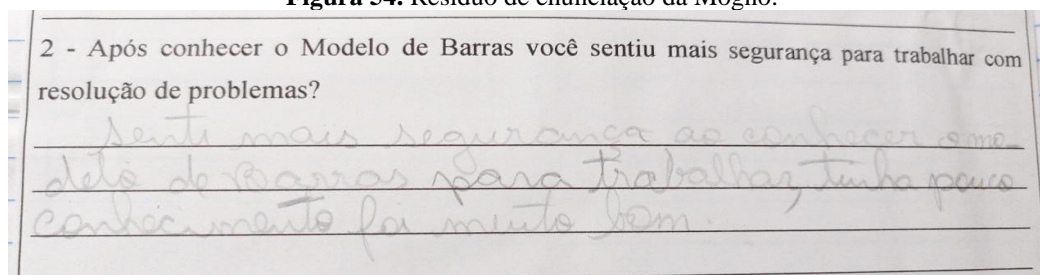 Figura 54. Resíduo de enunciação da Mogno.
2 - Após conhecer o Modelo de Barras você sentiu mais segurança para trabalhar com
resolução de problemas?
Senti mais segurança ao conhecer o mo-
delo de Barras para trabalhar, tinha pouco
conhecimento foi muito bom.